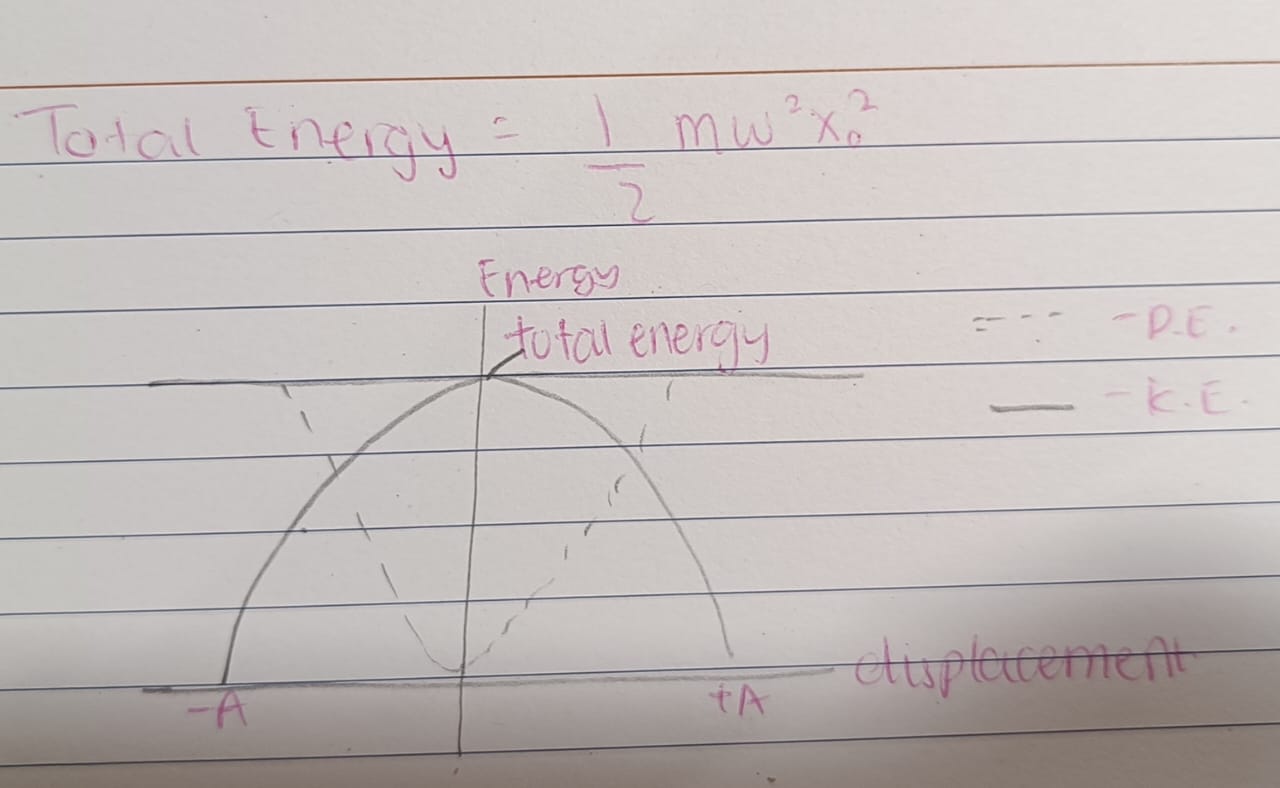 Total Energy = 1/2 mw²x₀²
Energy
total energy
- P.E.
- K.E.
displacement
-A
+A